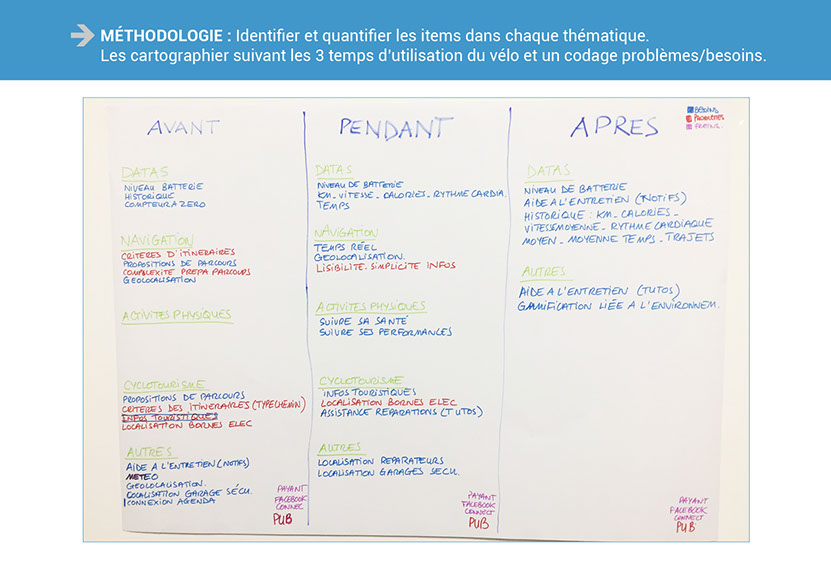 MÉTHODOLOGIE : Identifier et quantifier les items dans chaque thématique.
Les cartographier suivant les 3 temps d'utilisation du vélo et un codage problèmes/besoins.
BESOINS
PROBLÈMES
FREINS
AVANT
DATAS
NIVEAU BATTERIE
HISTORIQUE
COMPTEUR A ZERO
NAVIGATION
CRITERES D'ITINERAIRES
PROPOSITIONS DE PARCOURS
COMPLEXITE PREPA PARCOURS
GEOLOCALISATION
ACTIVITES PHYSIQUES
CYCLOTOURISME
PROPOSITIONS DE PARCOURS
CRITERES DES ITINERAIRES (TYPE CHEMIN)
INFOS TOURISTIQUES
LOCALISATION BORNES ELEC
AUTRES
AIDE A L'ENTRETIEN (NOTIFS)
METEO
GEOLOCALISATION.
LOCALISATION GARAGE SÉCU.
CONNEXION AGENDA
PAYANT
FACEBOOK
CONNEC
PUB
PENDANT
DATAS
NIVEAU DE BATTERIE
KM_VITESSE_CALORIES_RYTHME CARDIA.
TEMPS
NAVIGATION
TEMPS RÉEL
GEOLOCALISATION.
LISIBILITE. SIMPLICITE INFOS
ACTIVITES PHYSIQUES
SUIVRE SA SANTÉ
SUIVRE SES PERFORMANCES
CYCLOTOURISME
INFOS TOURISTIQUES
LOCALISATION BORNES ELEC
ASSISTANCE REPARATIONS (TUTOS)
AUTRES
LOCALISATION REPARATEURS
LOCALISATION GARAGES SECU.
PAYANT
FACEBOOK
CONNECT
PUB
APRES
DATAS
NIVEAU DE BATTERIE
AIDE A L'ENTRETIEN (NOTIFS)
HISTORIQUE : KM_CALORIES_
VITESSE MOYENNE_RYTHME CARDIAQUE
MOYEN_MOYENNE TEMPS_TRAJETS
AUTRES
AIDE A L'ENTRETIEN (TUTOS)
GAMIFICATION LIÉE A L'ENVIRONNEM.
PAYANT
FACEBOOK
CONNECT
PUB